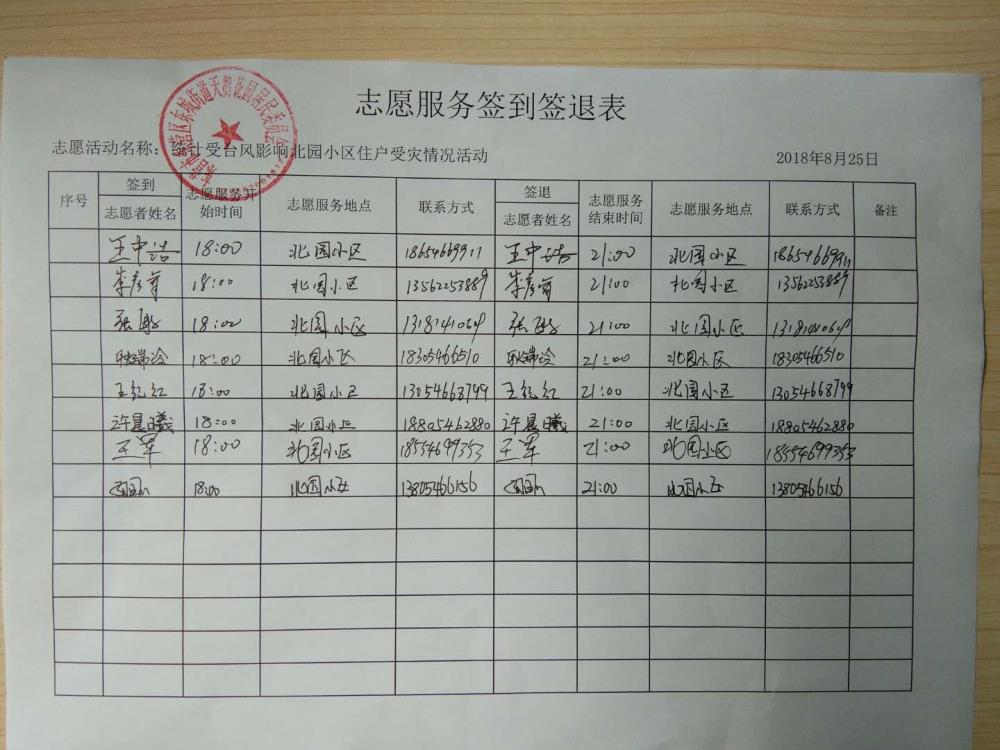 志愿服务签到签退表
志愿活动名称：统计受台风影响北园小区住户受灾情况活动 2018年8月25日
序号 签到 志愿服务开始时间 志愿服务地点 联系方式 签退 志愿服务结束时间 志愿服务地点 联系方式 备注
志愿者姓名 志愿者姓名
王中浩 18:00 北园小区 18654669911 王中浩 21:00 北园小区 18654669911
李彦育 18:00 北园小区 13562253889 李彦育 21:00 北园小区 13562253889
18:00 北园小区 21:00 北园小区
18:00 北园小区 18305466510 21:00 北园小区 18305466510
王红红 18:00 北园小区 13054668799 王红红 21:00 北园小区 13054668799
许晨曦 18:00 北园小区 18805462880 许晨曦 21:00 北园小区 18805462880
王军 18:00 北园小区 18554699353 王军 21:00 北园小区 18554699353
18:00 北园小区 13805466156 21:00 北园小区 13805466156